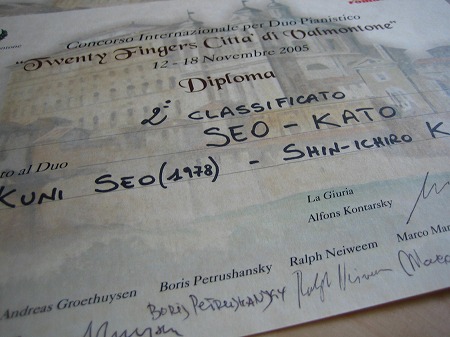 Concorso Internazionale per Duo Pianistico
"Twenty Fingers Città di Valmontone"
12 - 18 Novembre 2005
Diploma
2° CLASSIFICATO
SEO - KATO
to al Duo
KUNI SEO (1978) - SHIN-ICHIRO K
La Giuria
Alfons Kontarsky
Andreas Groethuysen
Boris Petrushansky
Ralph Neiweem
Marco Mar
BORIS PETRUSHANSKY